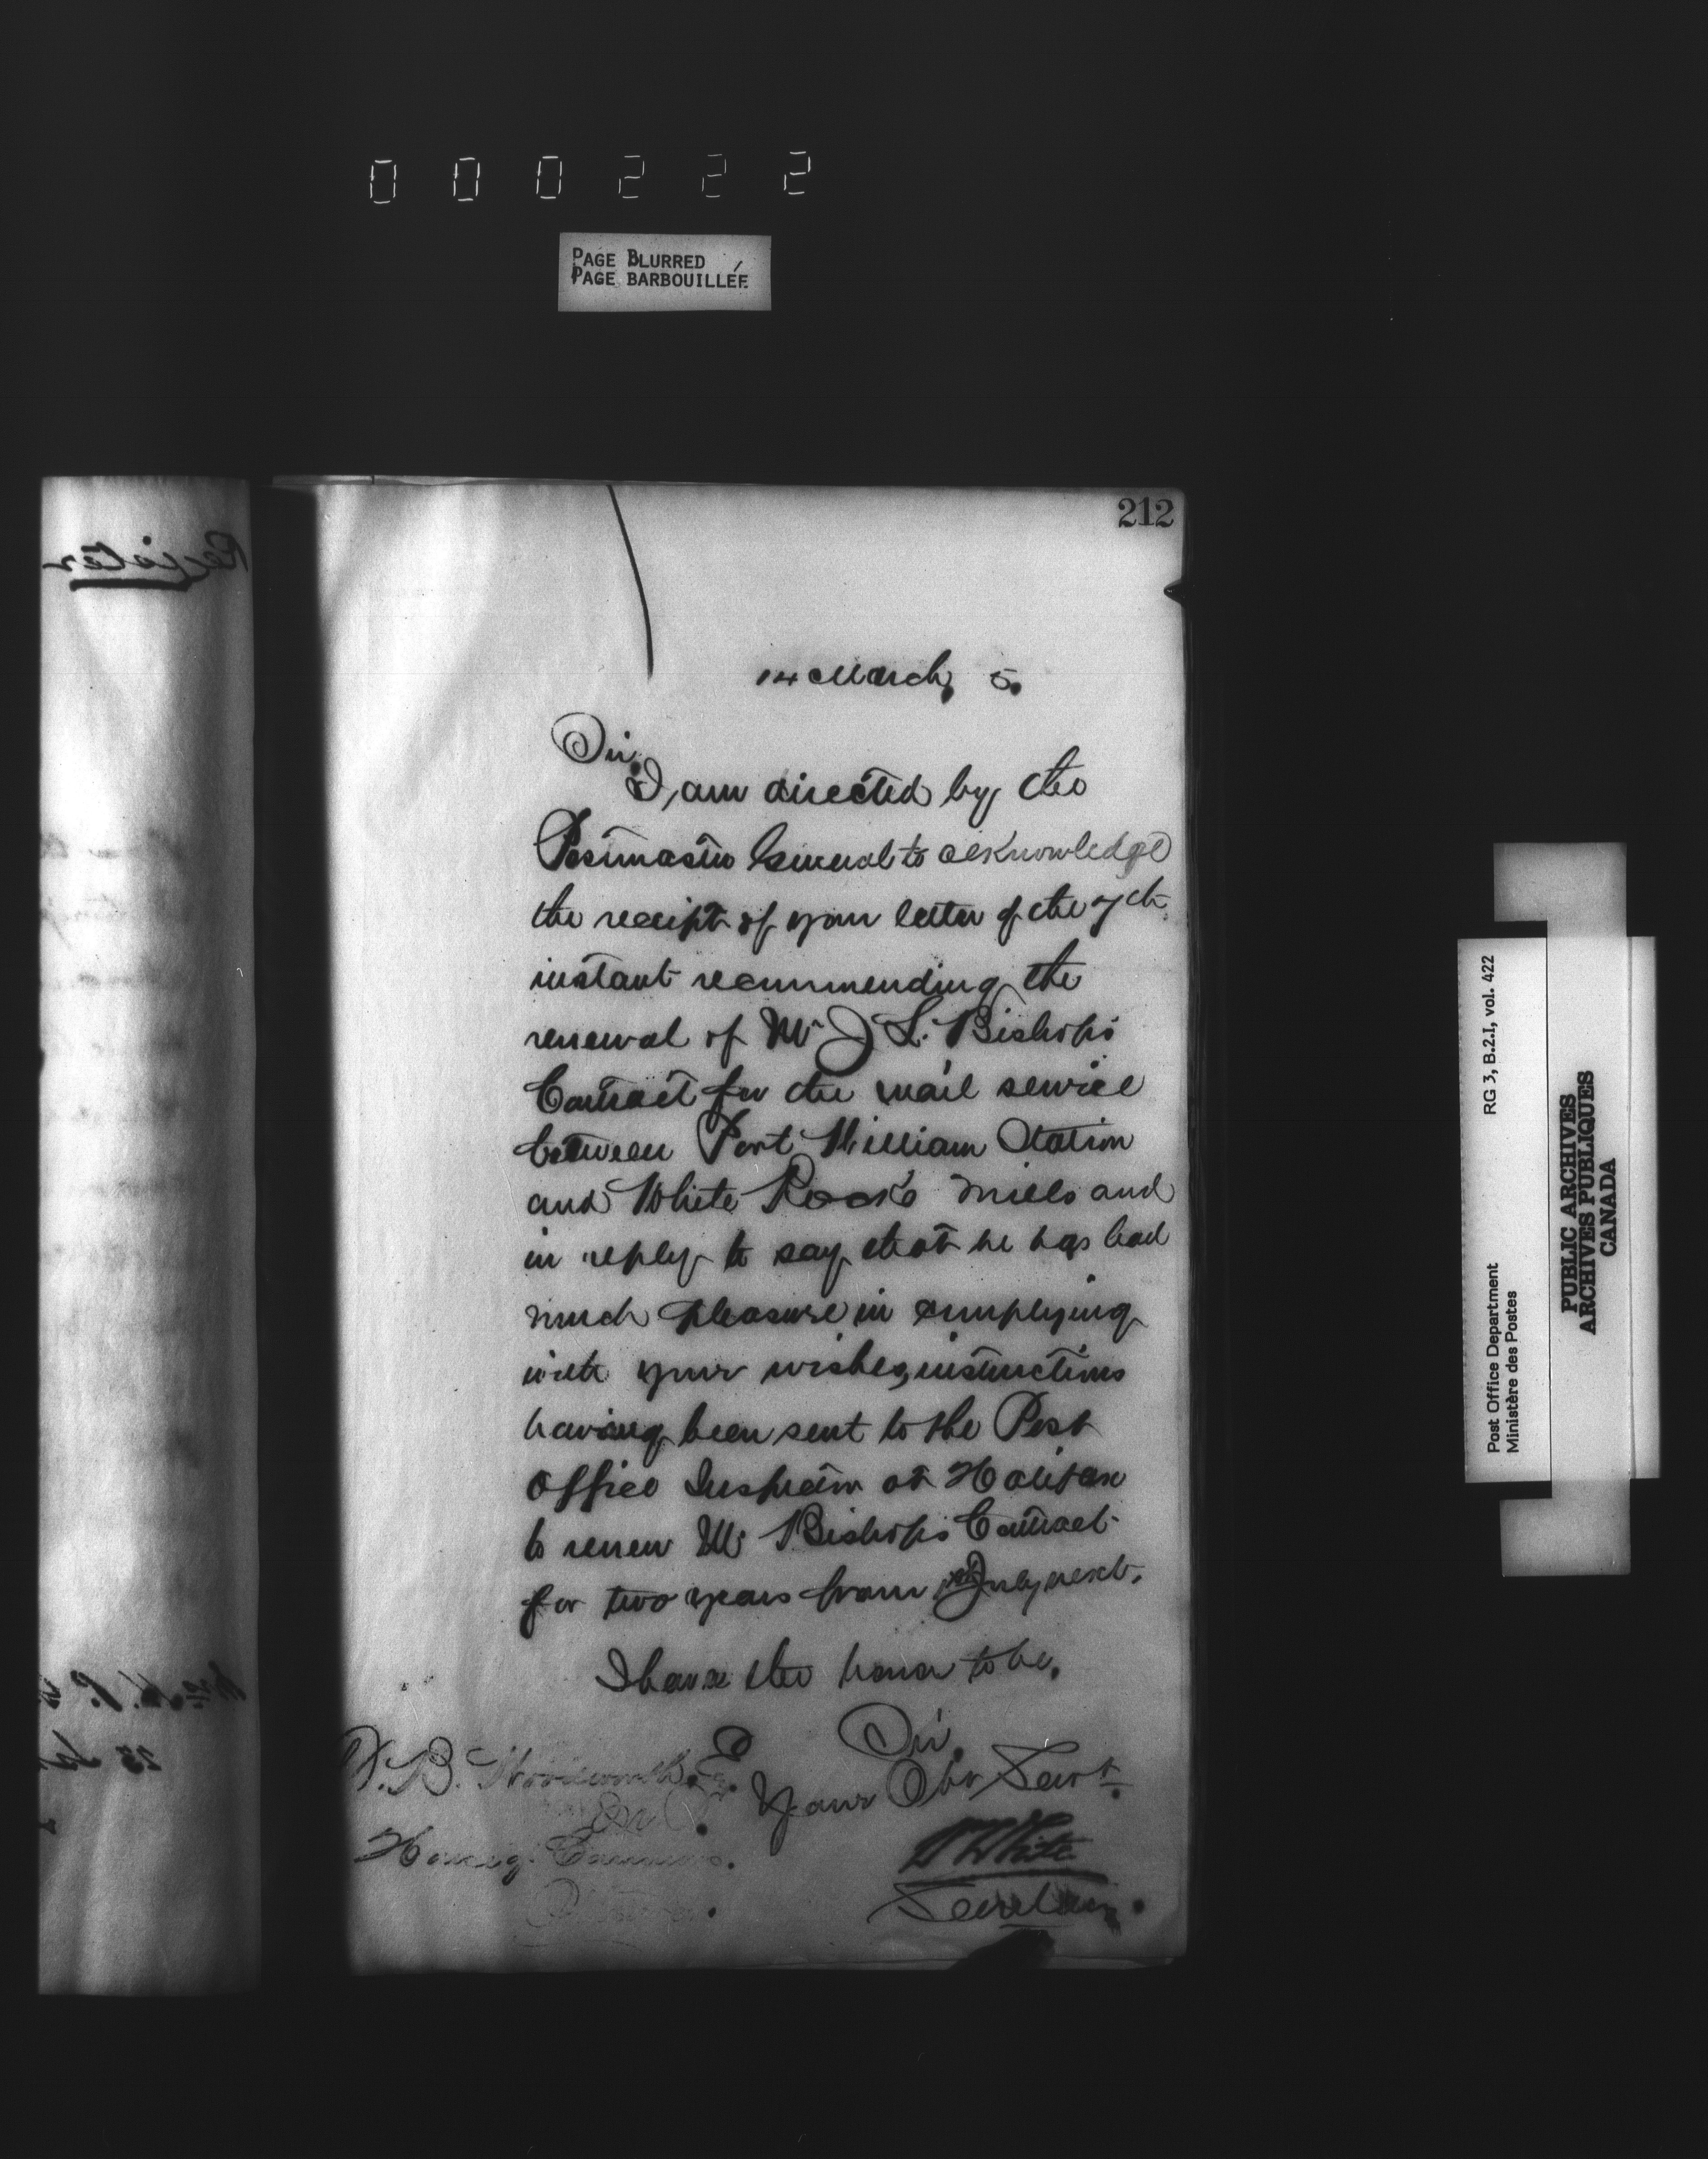 000222
PAGE BLURRED
PAGE BARBOUILLÉE
212
14 March, 5.
Sir,
I, am directed by the
Postmaster General to acknowledge
the receipt of your letter of the 7th
instant recommending the
renewal of Mr J. L. Bishops
Contract for the mail service
between Port William Station
and White Rock Mills and
in reply to say that he has had
much pleasure in complying
with your wishes, instructions
having been sent to the Post
Office Inspector at Halifax
to renew Mr Bishops Contract
for two years from 1st July next.
I have the honor to be,
Sir,
Your Obt Servt.
D. B. Woodworth, Esq.
M P.
House of Commons.
Ottawa.
W White
Secretary.
Register
Post Office Department
Ministère des Postes
RG 3, B.2.I, vol. 422
PUBLIC ARCHIVES
ARCHIVES PUBLIQUES
CANADA